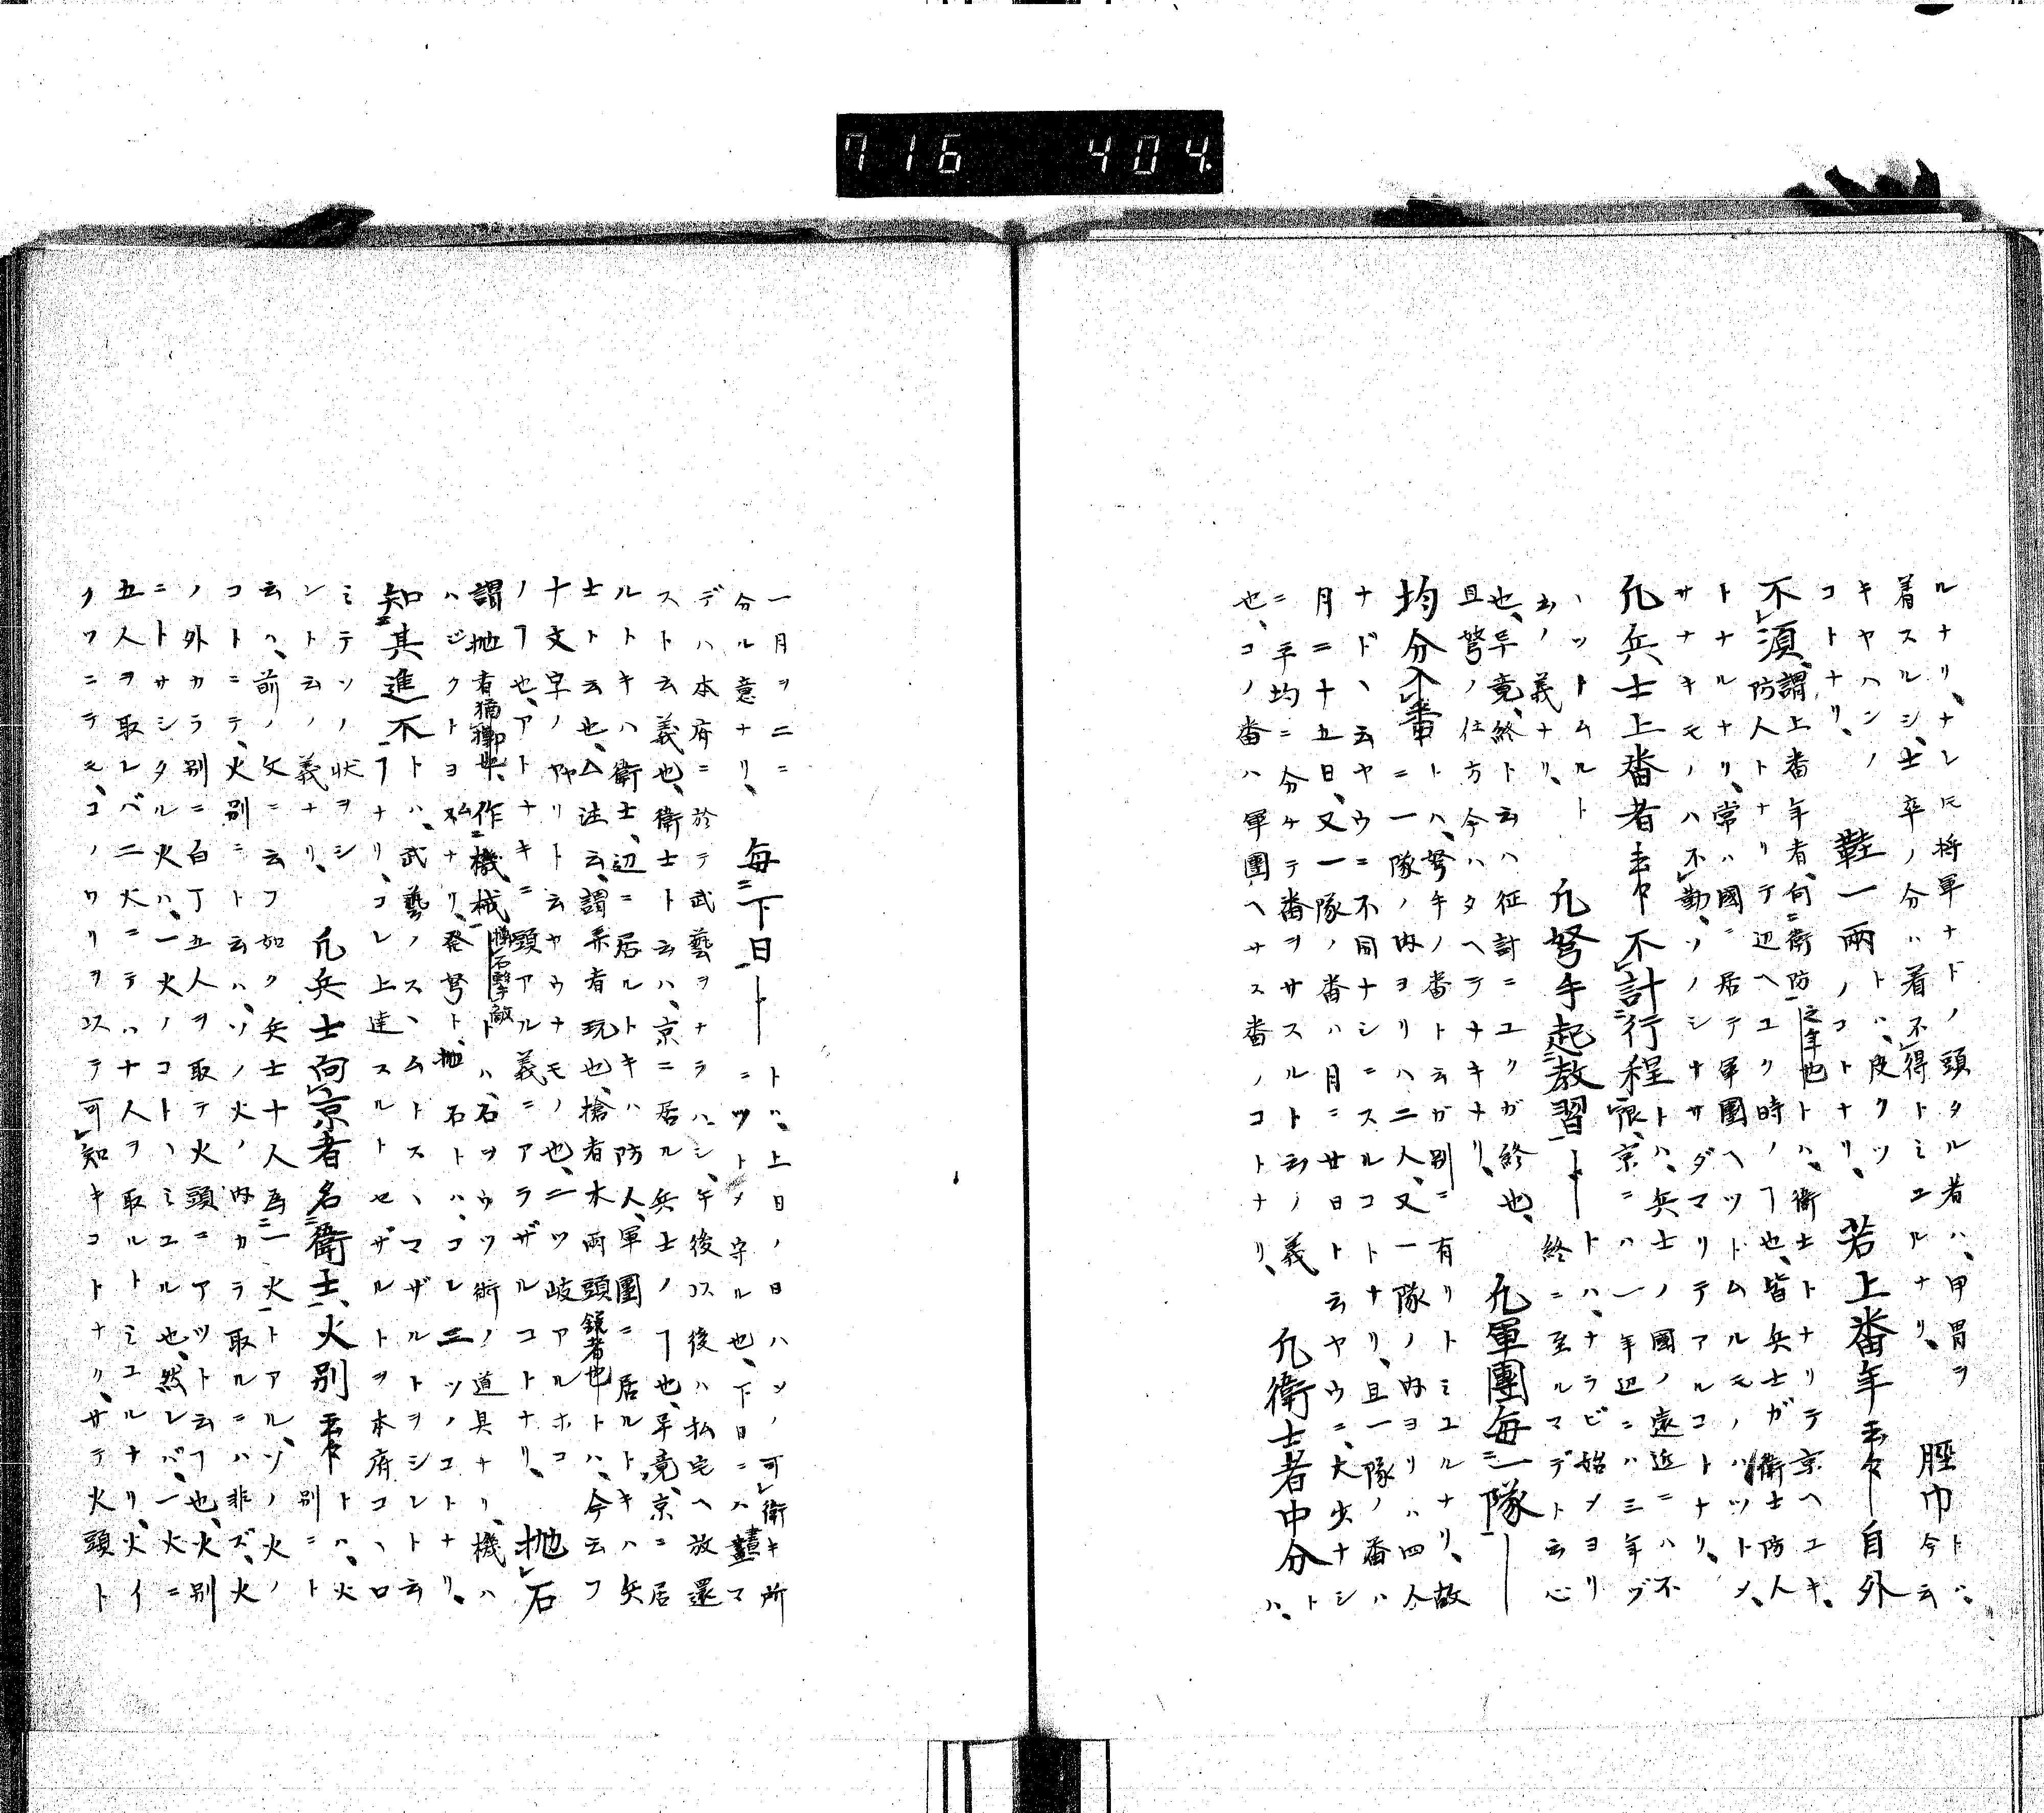 716 404.
ルナリ、ナレ𪜈将軍ナドノ頭タル者ハ、甲冑ヲ
着スルシ、士卒ノ分ハ着不得トミエルナリ、 脛巾今云ハ、
キヤハンノ 鞋一両ノコトナリ、 若上番年云々―自外
コトナリ、
不須、謂上番年者、向衛防之年也トハ、衛士トナリテ京ヘユキ、
防人トナリテ辺ヘユク時ノヿ也、皆兵士ガ衛士防人
トナルナリ、常ハ國ニ居テ軍團ヘツトムルモノハツトメ、
サナキモノハ不勤、ソノシナサダマリテアルコトナリ、
凡兵士上番者云々不計行程トハ、兵士ノ國ノ遠近ニハ不
限、京ニハ一年辺ニハ三年ヅ
ヽツトムルト 凡弩手起教習―トハ、ナラビ始メヨリ
云ノ義ナリ、 終ニ至ルマデト云心
也、畢竟、終ト云ハ征討ニユクガ終也、 凡軍團毎一隊―
且弩ノ仕方今ハタヘテナキナリ、
均分入番トハ、弩手ノ番ト云ガ別ニ有リトミユルナリ、故
ニ一隊ノ内ヨリハ二人、又一隊ノ内ヨリハ四人
ナドヽ云ヤウニ不同ナシニスルコトナリ、且一隊ノ番ハ
月ニ十五日、又一隊ノ番ハ月ニ廿日ト云ヤウニ、大少ナシ
ニ平均ニ分ケテ番ヲサスルト云ノ義 凡衛士者中分トハ、
也、コノ番ハ軍團ヘサス番ノコトナリ、
一月ヲ二ニ 毎下日―トハ、上日ノ日ハソノ可衛キ所
分ル意ナリ、 ニツトメ守ル也、下日ニハ晝マ
デハ本府ニ於テ武藝ヲナラハシ、午後コス後ハ私宅ヘ放還
スト云義也、衛士ト云ハ、京ニ居ル兵士ノヿ也、畢竟、京ニ居
ルトキハ衛士、辺ニ居ルトキハ防人、軍團ニ居ルトキハ兵
士ト云也、注云、謂弄者玩也、槍者木両頭鋭者也トハ、今云フ
十文字ノヤリト云ヤウナモノ也、二ツ岐アルホコ
ノヿ也、アトナキニ頭アル義ニアラザルコトナリ、 抛石
謂抛者猶擲也、作機械擲石撃敵トハ、石ヲウツ術ノ道具ナリ、機ハ
ハジクトヨムナリ、発弩ト、抛石トハ、コレ二ツノコトナリ、
知其進不トハ、武藝ノスヽムトスヽマザルトヲシレト云
ヿナリ、コレ上達スルトセザルトヲ本府コヽロ
ミテソノ状ヲシ 凡兵士向京者名衛士、火別云々トハ、火
ント云ノ義ナリ、 別ニト
云ハ、前ノ文ニ云フ如ク兵士十人為一火トアル、ソノ火ノ
コトニテ、火別ニト云ハ、ソノ火ノ内カラ取ルニハ非ズ、火
ノ外カラ別ニ白丁五人ヲ取テ火頭ニアツト云ヿ也、火別
ニトサシタル火ハ、一火ノコトヽミユル也、然レバ、一火ニ
五人ヲ取レバ二火ニテハ十人ヲ取ルトミユルナリ、火イ
クワニテモ、コノワリヲコステ可知キコトナリ、サテ火頭ト